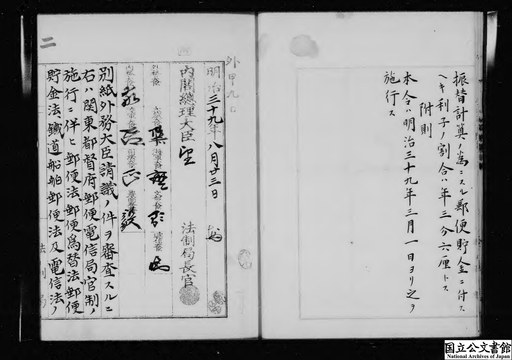 振替計算ノ為ニスル郵便貯金ニ付スヘキ利子ノ割合ハ年三分六厘トス
附則
本令ハ明治三十九年三月一日ヨリ之ヲ
施行ス
外甲九
明治三十九年八月廿三日
内閣總理大臣
法制局長官
別紙外務大臣請議ノ件ヲ審査スルニ
右ハ関東都督府郵便電信局官制ノ
施行ニ伴ヒ郵便法、郵便為替法、郵便
貯金法、鐵道船舶郵便法及電信法ノ
二
法制局
国立公文書館
National Archives of Japan